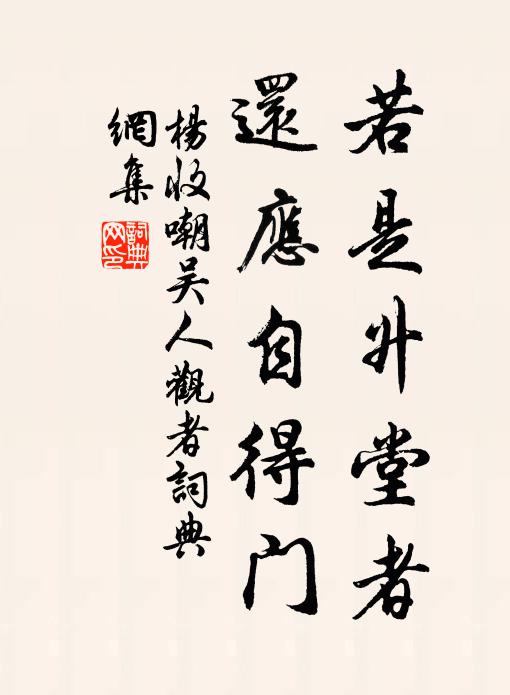 若是升堂者
還應自得门
楊收嘲吴人觀者詞典
網集
詞典
网印